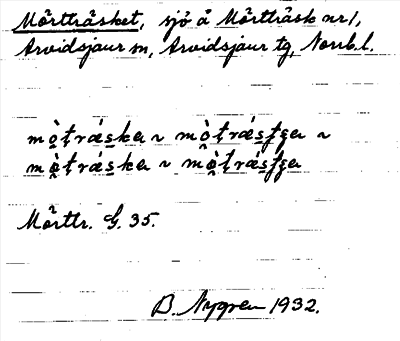 Mörtträsket, sjö å Mörtträsk nr 1,
Arvidsjaur sn, Arvidsjaur tg, Norrb. l.
mò̤ṭrá̤ska ~ mò̤ṭrá̤sʈʂa ~
mò̤ṭrá̤ska ~ mò̤ṭrá̤sʈʂa
Mörttr. G. 35.
B. Nygren 1932.